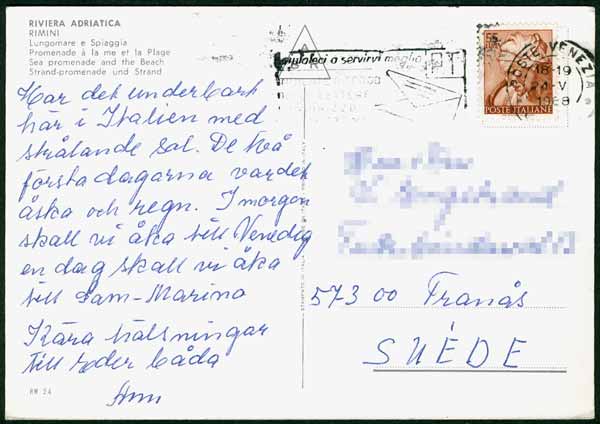 RIVIERA ADRIATICA
RIMINI
Lungomare e Spiaggia
Promenade à la me et la Plage
Sea promenade and the Beach
Strand-promenade und Strand
Har det underbart
här i Italien med
strålande sol. De två
första dagarna var det
åska och regn. I morgon
skall vi åka till Venedig
en dag skall vi åka
till Sam-Marino
Kära hälsningar
till eder båda
RM 24
aiutateci a servirvi meglio
POSTE VENEZIA
18-19
24-V
1968
POSTE ITALIANE
573 00 Tranås
SUÈDE